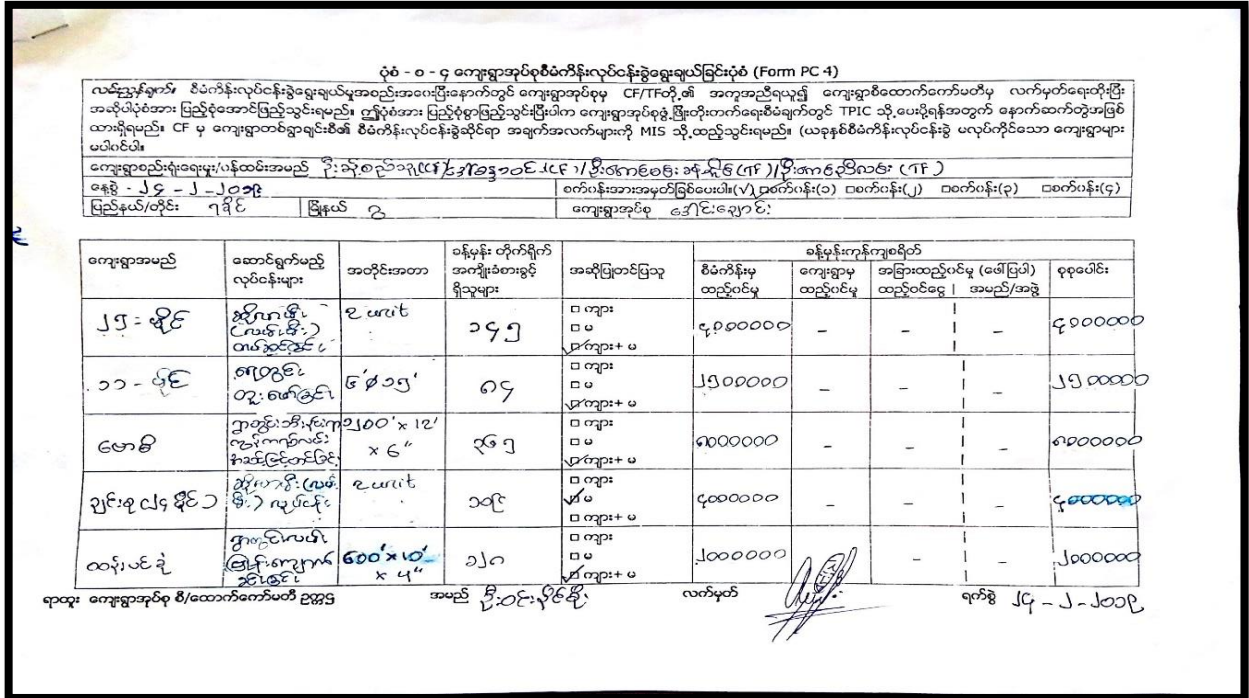 ပုံစံ - ၁ - ၄ ကျေးရွာအုပ်စုစီမံကိန်းလုပ်ငန်းခွဲရွေးချယ်ခြင်းပုံစံ (Form PC 4)
လမ်းညွှန်ချက်။ စီမံကိန်းလုပ်ငန်းခွဲရွေးချယ်မှုအစည်းအဝေးပြီးနောက်တွင် ကျေးရွာအုပ်စုမှ CF/TFတို့၏ အကူအညီရယူ၍ ကျေးရွာစီထောက်ကော်မတီမှ လက်မှတ်ရေးထိုးပြီး
အဆိုပါပုံစံအား ပြည့်စုံအောင်ဖြည့်သွင်းရမည်။ ဤပုံစံအား ပြည့်စုံစွာဖြည့်သွင်းပြီးပါက ကျေးရွာအုပ်စုဖွံ့ဖြိုးတိုးတက်ရေးစီမံချက်တွင် TPIC သို့ ပေးပို့ရန်အတွက် နောက်ဆက်တွဲအဖြစ်
ထားရှိရမည်။ CF မှ ကျေးရွာတစ်ရွာချင်းစီ၏ စီမံကိန်းလုပ်ငန်းခွဲဆိုင်ရာ အချက်အလက်များကို MIS သို့ ထည့်သွင်းရမည်။ (ယခုနှစ်စီမံကိန်းလုပ်ငန်းခွဲ မလုပ်ကိုင်သော ကျေးရွာများ
မပါဝင်ပါ။
ကျေးရွာစည်းရုံးရေးမှူး/ဝန်ထမ်းအမည်
နေ့စွဲ - ၂၄ - ၂ - ၂၀၁၉ စက်ဝန်းအားအမှတ်ခြစ်ပေးပါ။(√) □စက်ဝန်း(၁) □စက်ဝန်း(၂) □စက်ဝန်း(၃) □စက်ဝန်း(၄)
ပြည်နယ်/တိုင်း ရခိုင် မြို့နယ် ကျေးရွာအုပ်စု ဒေါင်းချောင်း
ကျေးရွာအမည် ဆောင်ရွက်မည့် လုပ်ငန်းများ အတိုင်းအတာ ခန့်မှန်း တိုက်ရိုက် အကျိုးခံစားခွင့် ရှိသူများ အဆိုပြုတင်ပြသူ ခန့်မှန်းကုန်ကျစရိတ်
စီမံကိန်းမှ ထည့်ဝင်မှု ကျေးရွာမှ ထည့်ဝင်မှု အခြားထည့်ဝင်မှု (ဖေါ်ပြပါ) စုစုပေါင်း
ထည့်ဝင်ငွေ အမည်/အဖွဲ့
၂၅ - မိုင် ဆိုလာမီး (လမ်းမီး) တပ်ဆင်ခြင်း 2 unit ၁၄၅ □ ကျား □ မ ☑ ကျား + မ ၄၀၀၀၀၀၀ - - - ၄၀၀၀၀၀၀
၁၁ - မိုင် ရေတွင်း တူးဖော်ခြင်း ၈၄ □ ကျား □ မ ☑ ကျား + မ ၂၅၀၀၀၀၀ - - - ၂၅၀၀၀၀၀
ဗောဓိ 2100' x 12' x 6" ၃၆၅ □ ကျား □ မ ☑ ကျား + မ ၈၀၀၀၀၀၀ - - - ၈၀၀၀၀၀၀
ချင်းစု (၂၄ မိုင်) ဆိုလာမီး (လမ်းမီး) လုပ်ငန်း 2 unit ၁၀၉ □ ကျား ☑ မ □ ကျား + မ ၄၀၀၀၀၀၀ - - - ၄၀၀၀၀၀၀
ထန်းပင်ခုံ 600' x 10' x 4" ၁၂၈ □ ကျား □ မ ☑ ကျား + မ ၂၀၀၀၀၀၀ - - - ၂၀၀၀၀၀၀
ရာထူး ကျေးရွာအုပ်စု စီ/ထောက်ကော်မတီ ဥက္ကဋ္ဌ အမည် ဦးဝင်းနိုင်စိုး လက်မှတ် ရက်စွဲ ၂၄ - ၂ - ၂၀၁၉